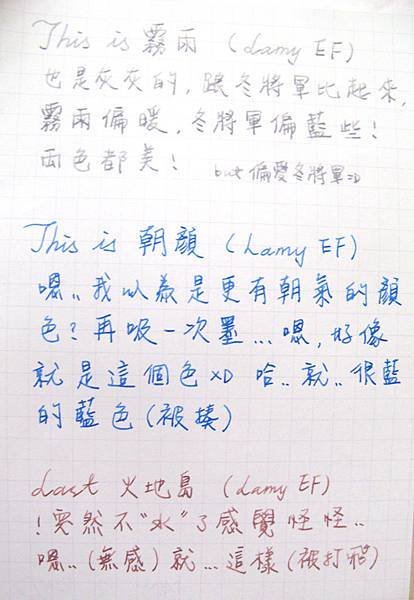 This is 霧雨 (Lamy EF)
也是灰灰的，跟冬將軍比起來，
霧雨偏暖，冬將軍偏藍些！
兩色都美！ but 偏愛冬將軍=D
This is 朝顏 (Lamy EF)
嗯..我以為是更有朝氣的顏
色？再吸一次墨...嗯，好像
就是這個色xD 哈..就..很藍
的藍色(被揍)
Last 火地島 (Lamy EF)
！突然不"水"了感覺怪怪..
嗯..(無感)就...這樣(被打死)